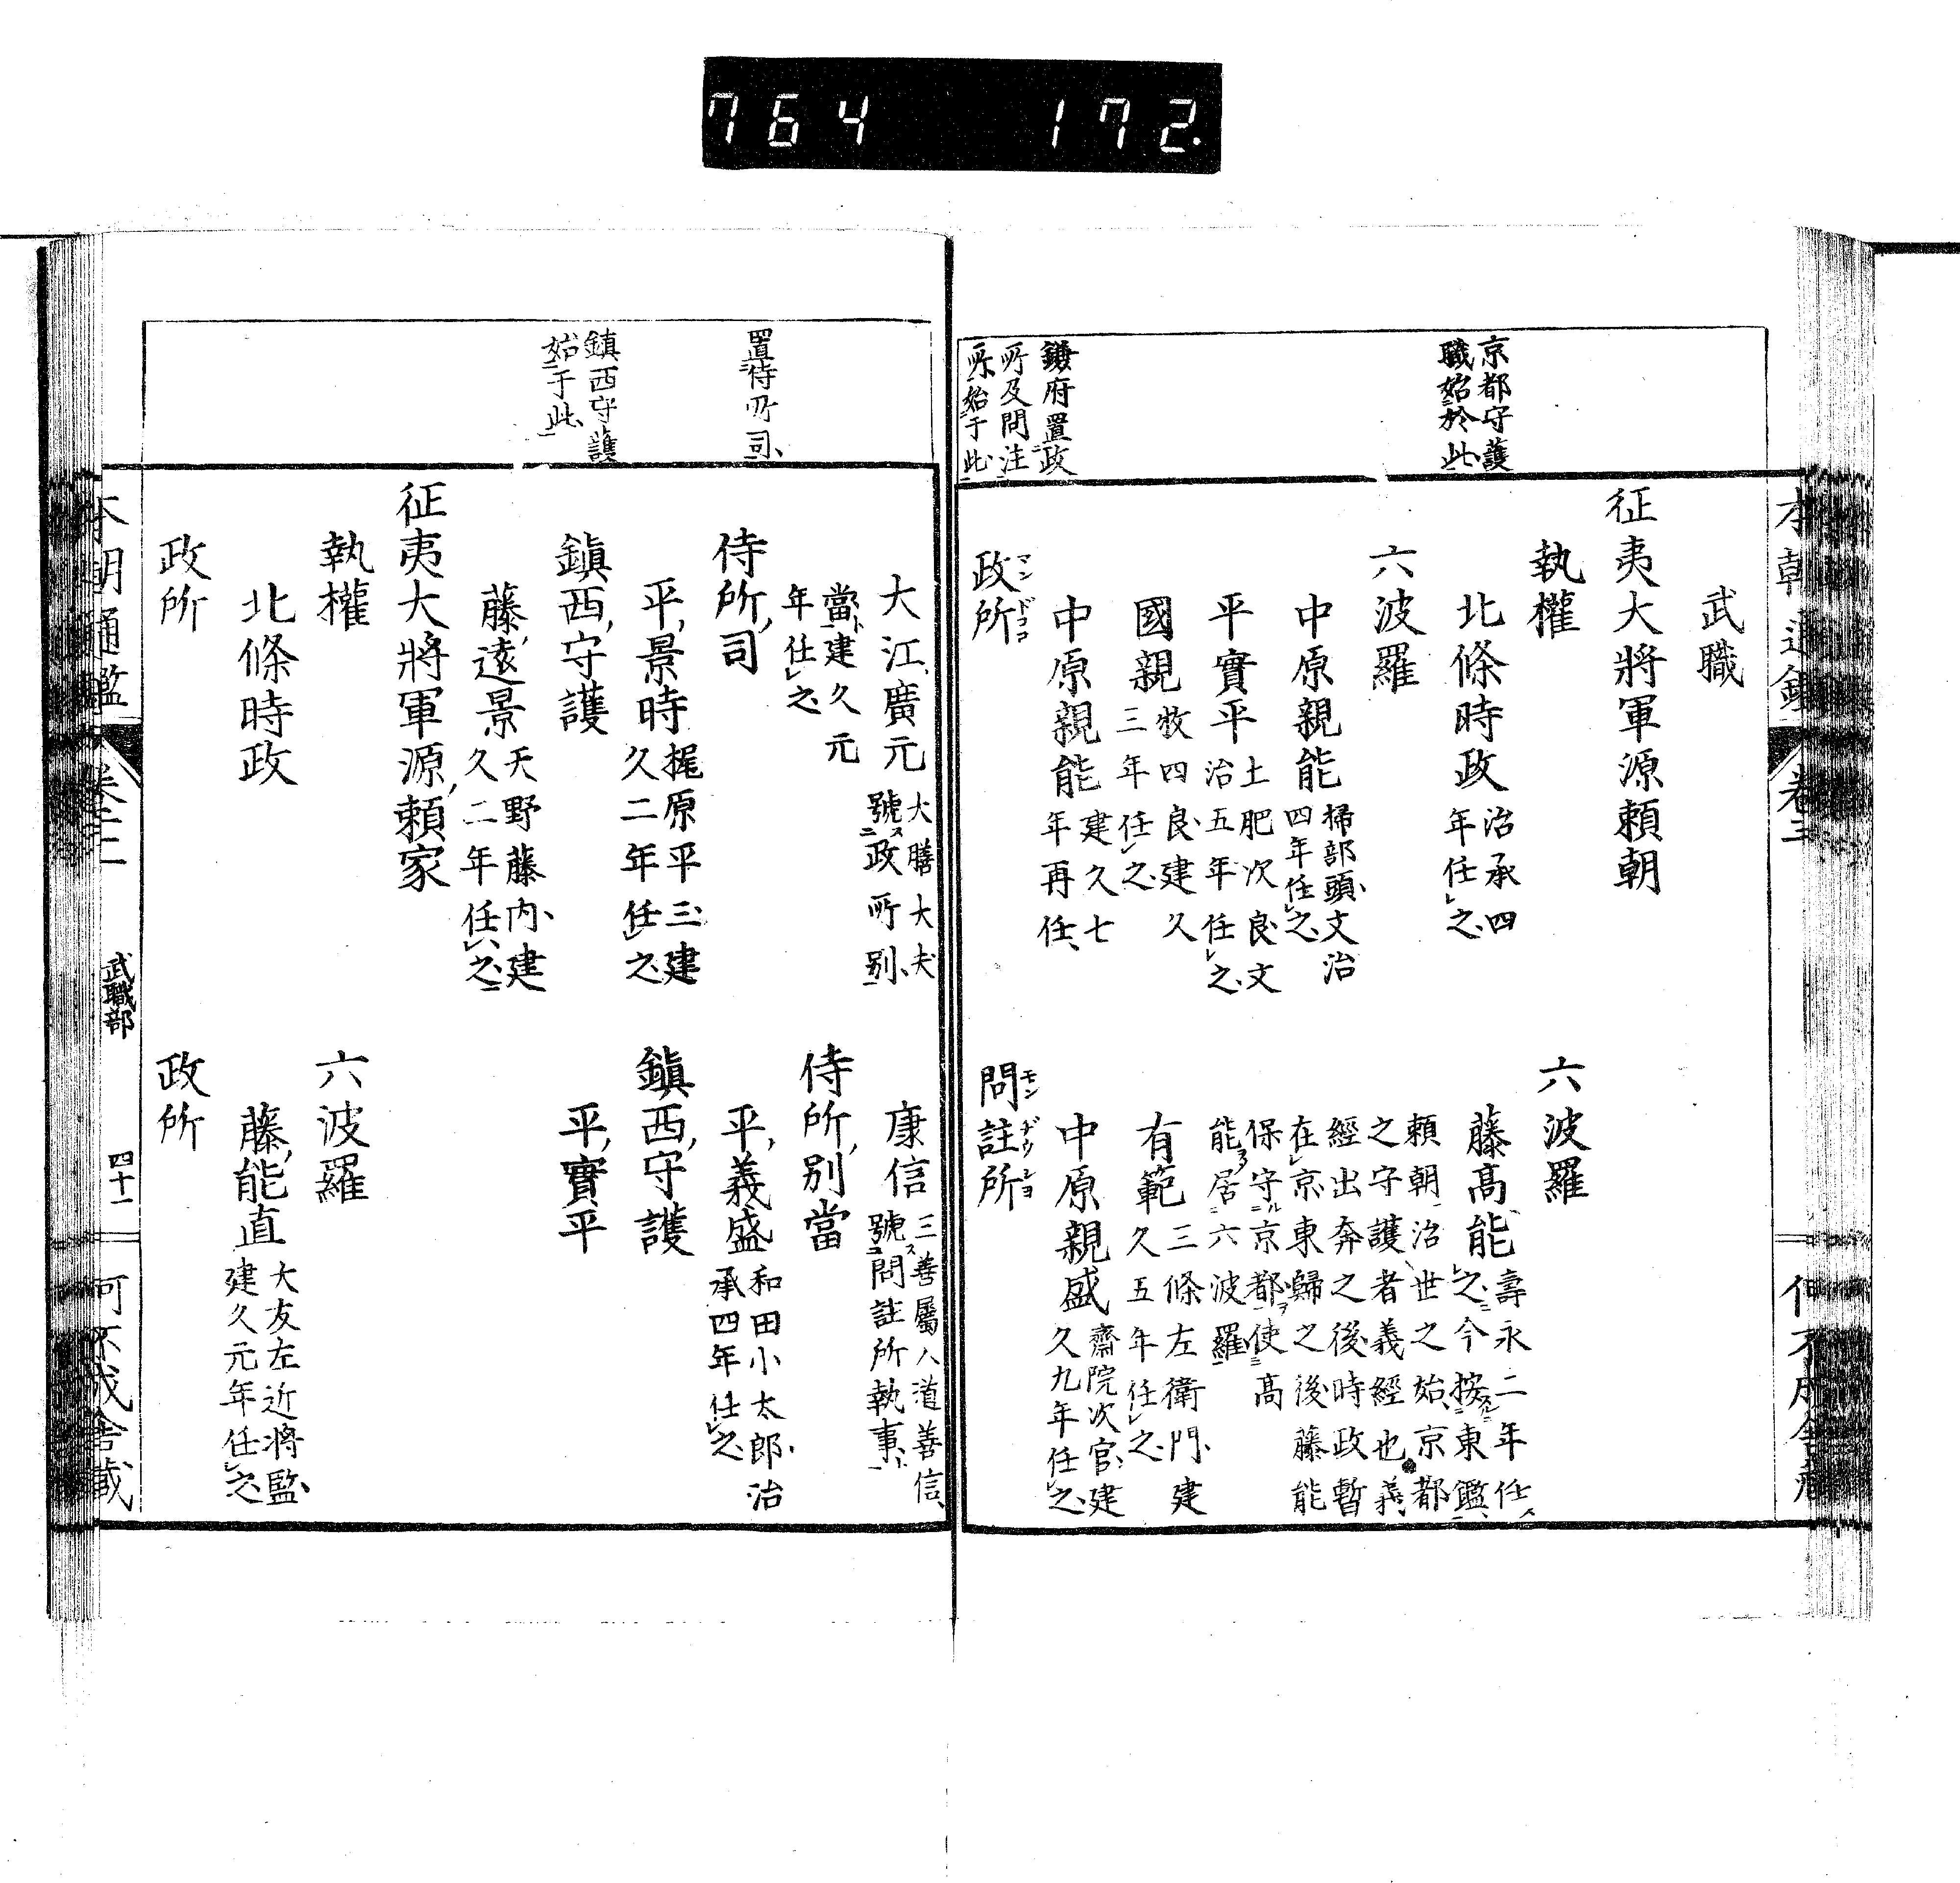 764 172.
京都守護
職始於此
鎌府置政
所及問注
所始于此
武職
征夷大將軍源頼朝
執權
六波羅
北條時政
治承四
年任之
藤高能
壽永二年任
之今按東鑑
頼朝治世之始京都
之守護者義經也義
經出奔之後時政暫
在京東歸之後藤能
保守京都使高
能居六波羅
六波羅
中原親能
掃部頭文治
四年任之
平實平
土肥次良文
治五年任之
國親
牧四良建久
三年任之
有範
三條左衛門建
久五年任之
中原親能
建久七
年再任
中原親盛
齋院次官建
久九年任之
政所
マンドコロ
問註所
モンヂウシヨ
置侍所司
鎮西守護
始于此
大江廣元
大膳大夫
號政所別
當建久元
年任之
康信
三善屬入道善信
號問註所執事
侍所別當
侍所司
平義盛
和田小太郎治
承四年任之
平景時
梶原平三建
久二年任之
鎮西守護
鎮西守護
平實平
藤遠景
天野藤内建
久二年任之
征夷大將軍源頼家
執權
六波羅
北條時政
藤能直
大友左近將監
建久元年任之
政所
政所
本朝通鑑
卷三
武職部
四十一